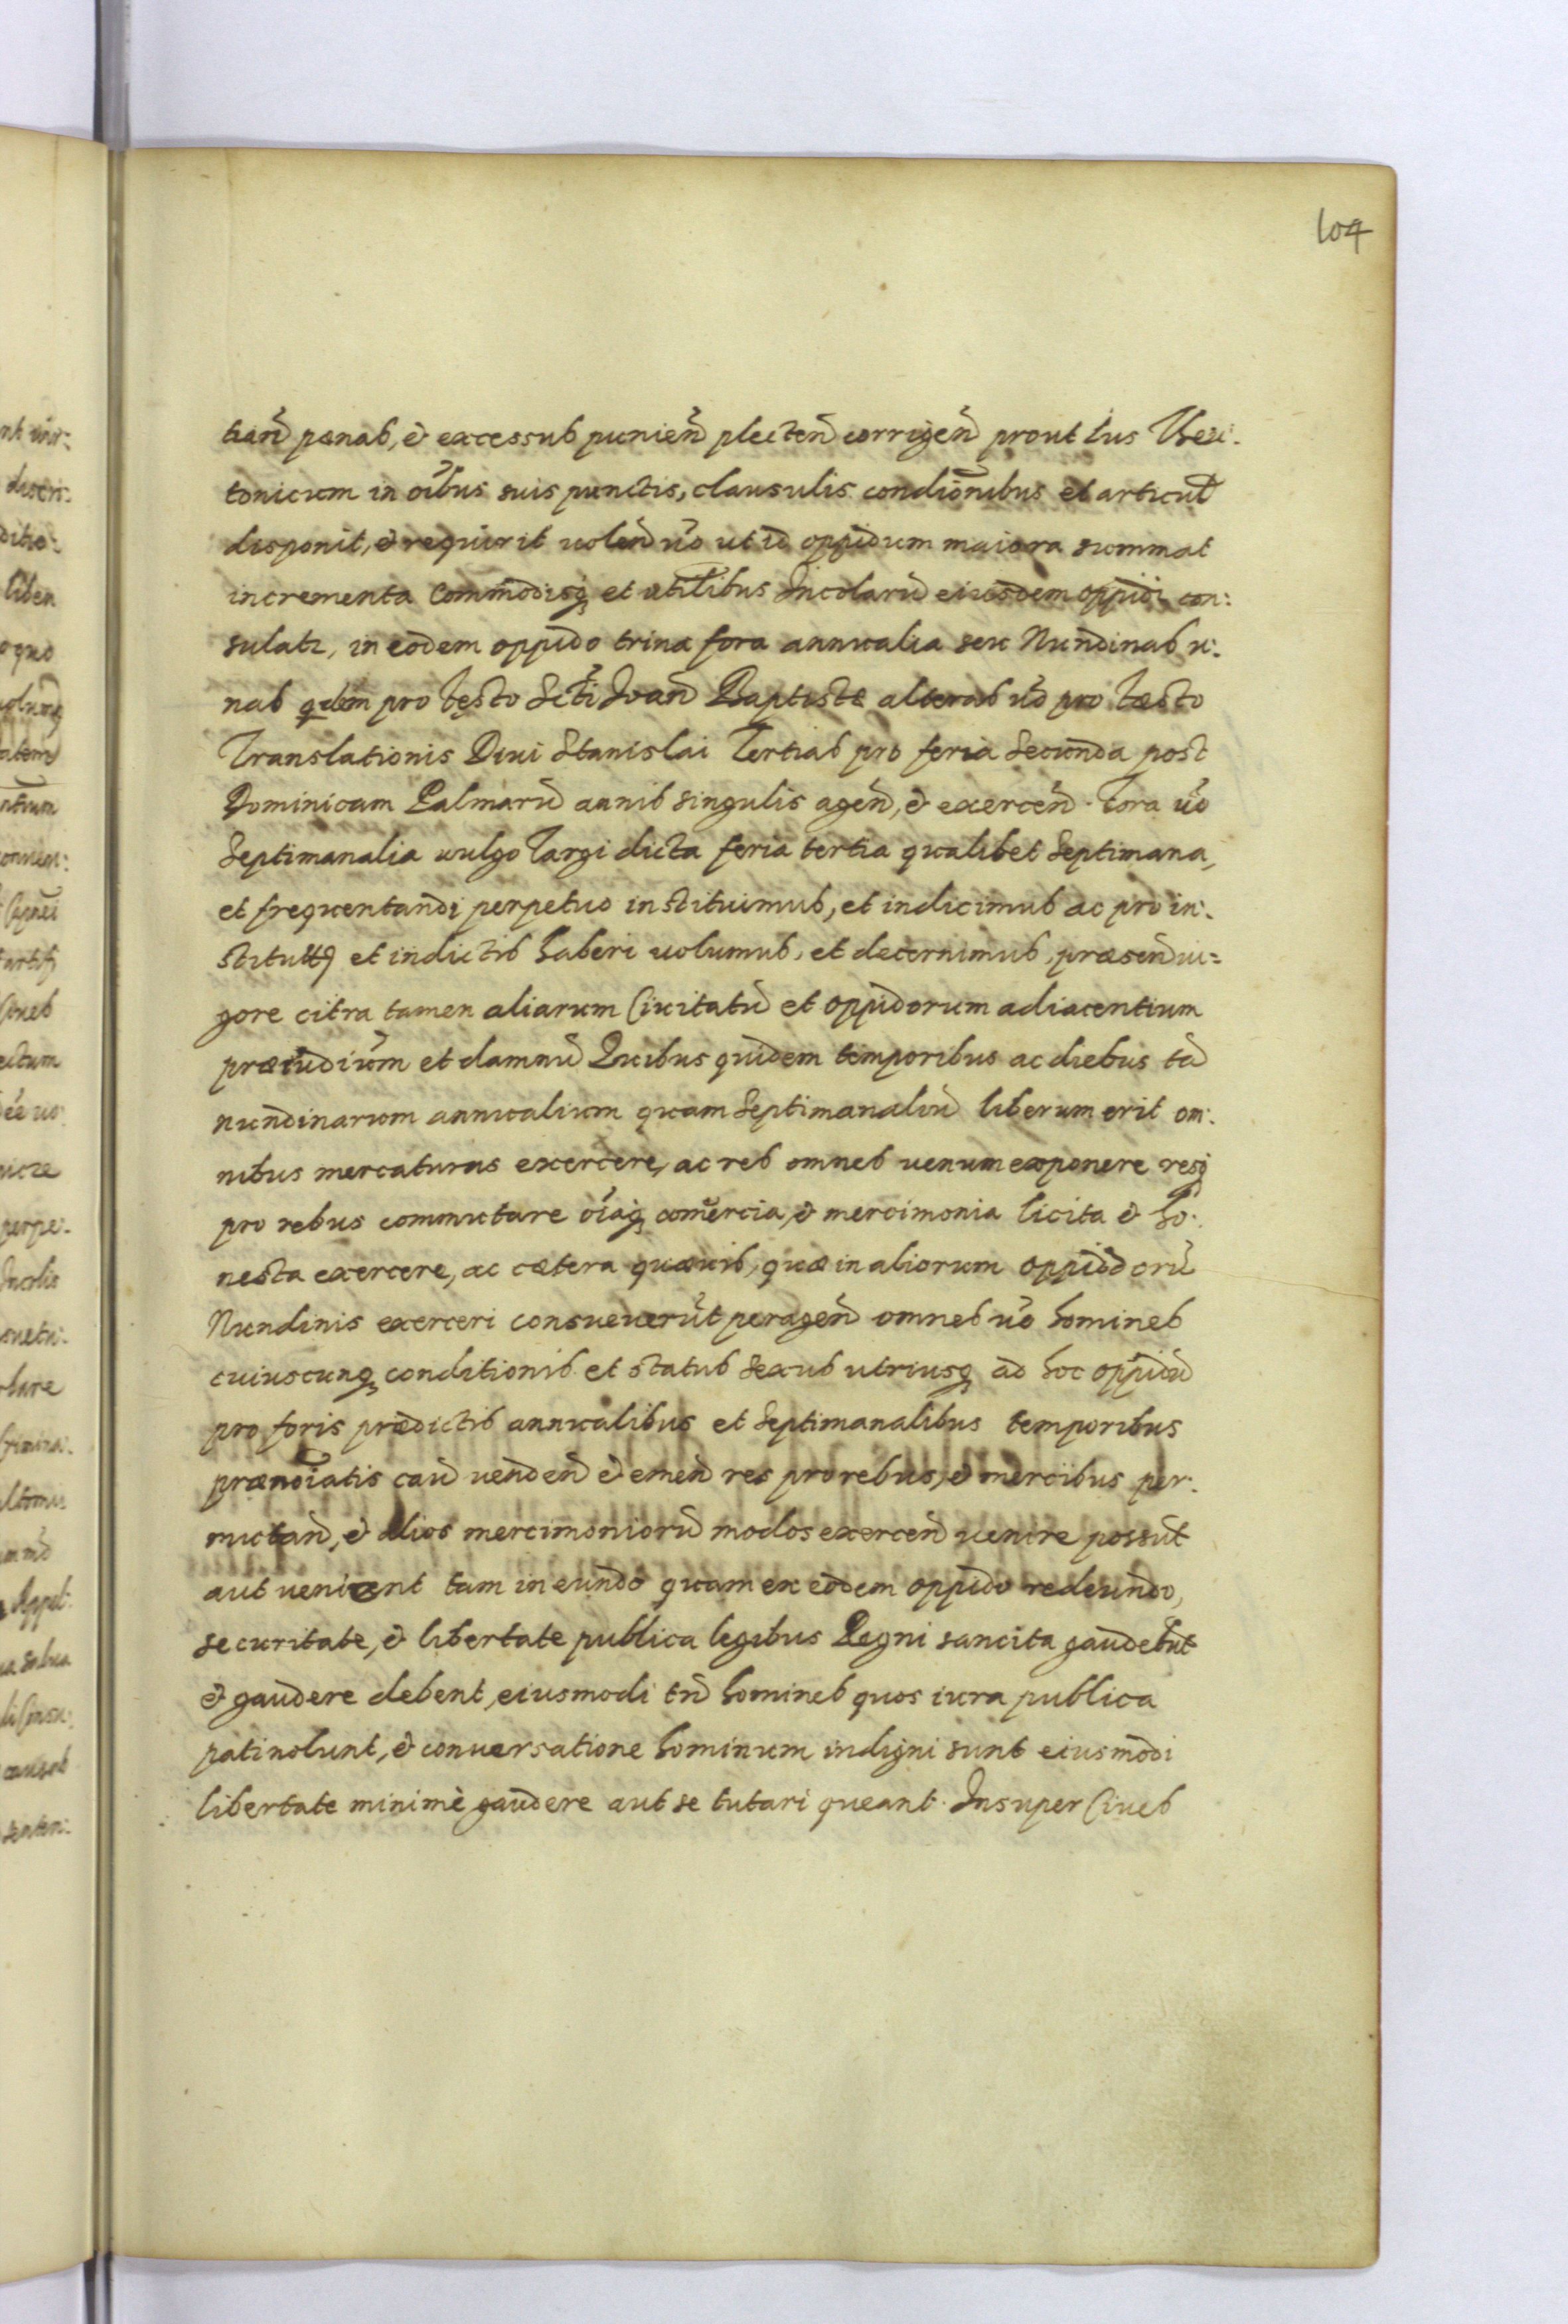 104
tian̄ pœnas, et excessus punien̄ plecten̄ corrigen̄ prout Ius Theu-
tonicum in oībus suis punctis, clausulis condiōnibus et articul̄
disponit, et requirit uolen̄ uō ut id oppidum maiora summat
incrementa commodisq; et utilibus Incolarū eiusdem oppidi con:
sulatr, in eodem oppido trina fora annualia seu Nundinas u:
nas qdem pro festo Scti Joan̄ Baptistæ alteras uō pro Fæsto
Translationis Diui Stanislai Tertias pro feria Secunda post
Dominicam Palmarū annis singulis agen̄, et exercen̄. Fora uō
Septimanalia uulgo Targi dicta feria tertia qualibet Septimana,
et frequentandi perpetuo instituimus, et indicimus ac pro in:
stitutis et indictis haberi uolumus, et decernimus, præsen̄ ui=
gore citra tamen aliarum Ciuitatū et oppidorum adiacentium
præiudiūm et damnū Quibus quidem temporibus ac diebus tā
nundinarum annualium quam Septimanaliū liberum erit om:
nibus mercaturas exercere, ac res omnes uenum exponere resq;
pro rebus commutare oīaq; comercia, et mercimonia licita et ho:
nesta exercere, ac cœtera quæuis, quæ in aliorum oppidorū
Nundinis exerceri consueuerūt peragen̄ omnes uō homines
cuiuscunq; conditionis et status sexus utriusq; ad hoc oppidū
pro foris prædictis annualibus et Septimanalibus temporibus
prænoīatis cau̅ uenden̄ et emen̄ res pro rebus, et mercibus per:
mutan̄, et alios mercimoniorū modos exercen̄ uenire possūt
aut uenirent tam in eundo quam ex eodem oppido redeundo,
securitate, et libertate publica legibus Regni sancita gaudebūt
et gaudere debent, eiusmodi tn̄ homines quos iura publica
pati nolunt, et conuersatione hominum indigni sunt eiusmodi
libertate minimè gaudere aut se tutari queant. Insuper Ciues